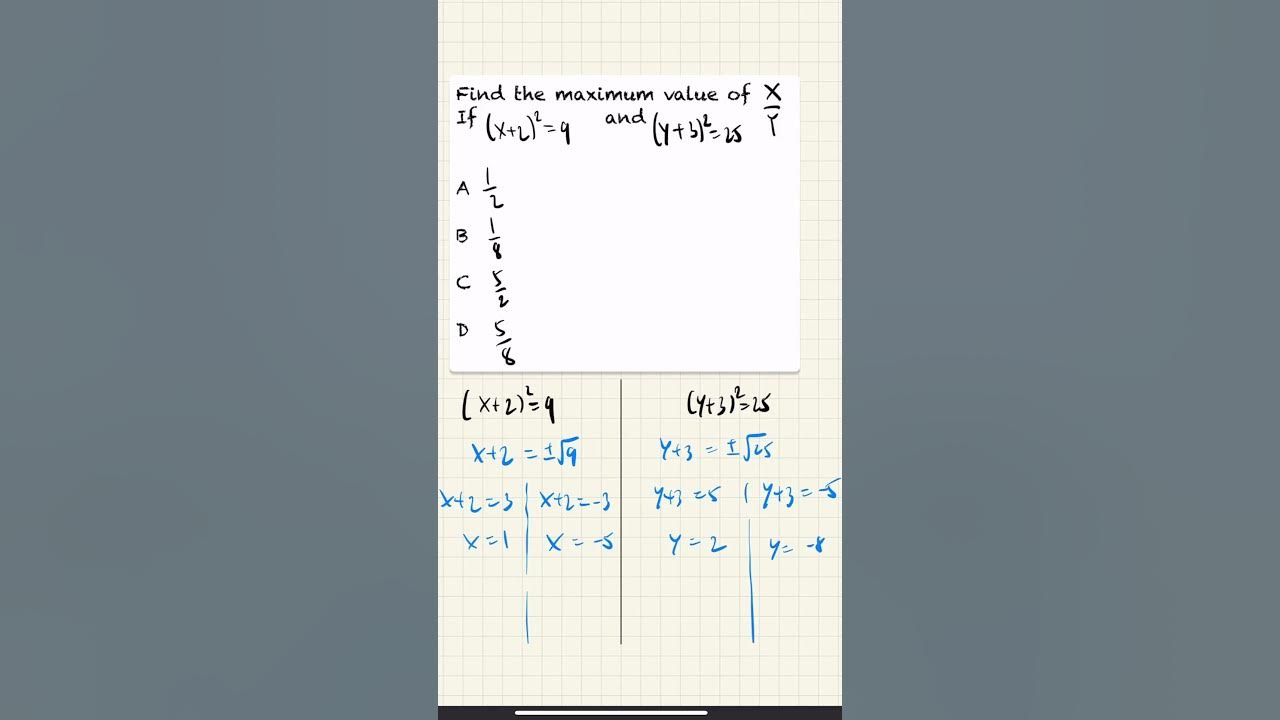 Find the maximum value of X/Y
If (x+2)²=9 and (y+3)²=25
A 1/2
B 1/8
C 5/2
D 5/8
(x+2)²=9
x+2 = ±√9
x+2=3 | x+2=-3
x=1 | x=-5
(y+3)²=25
y+3 = ±√25
y+3=5 | y+3=-5
y=2 | y=-8